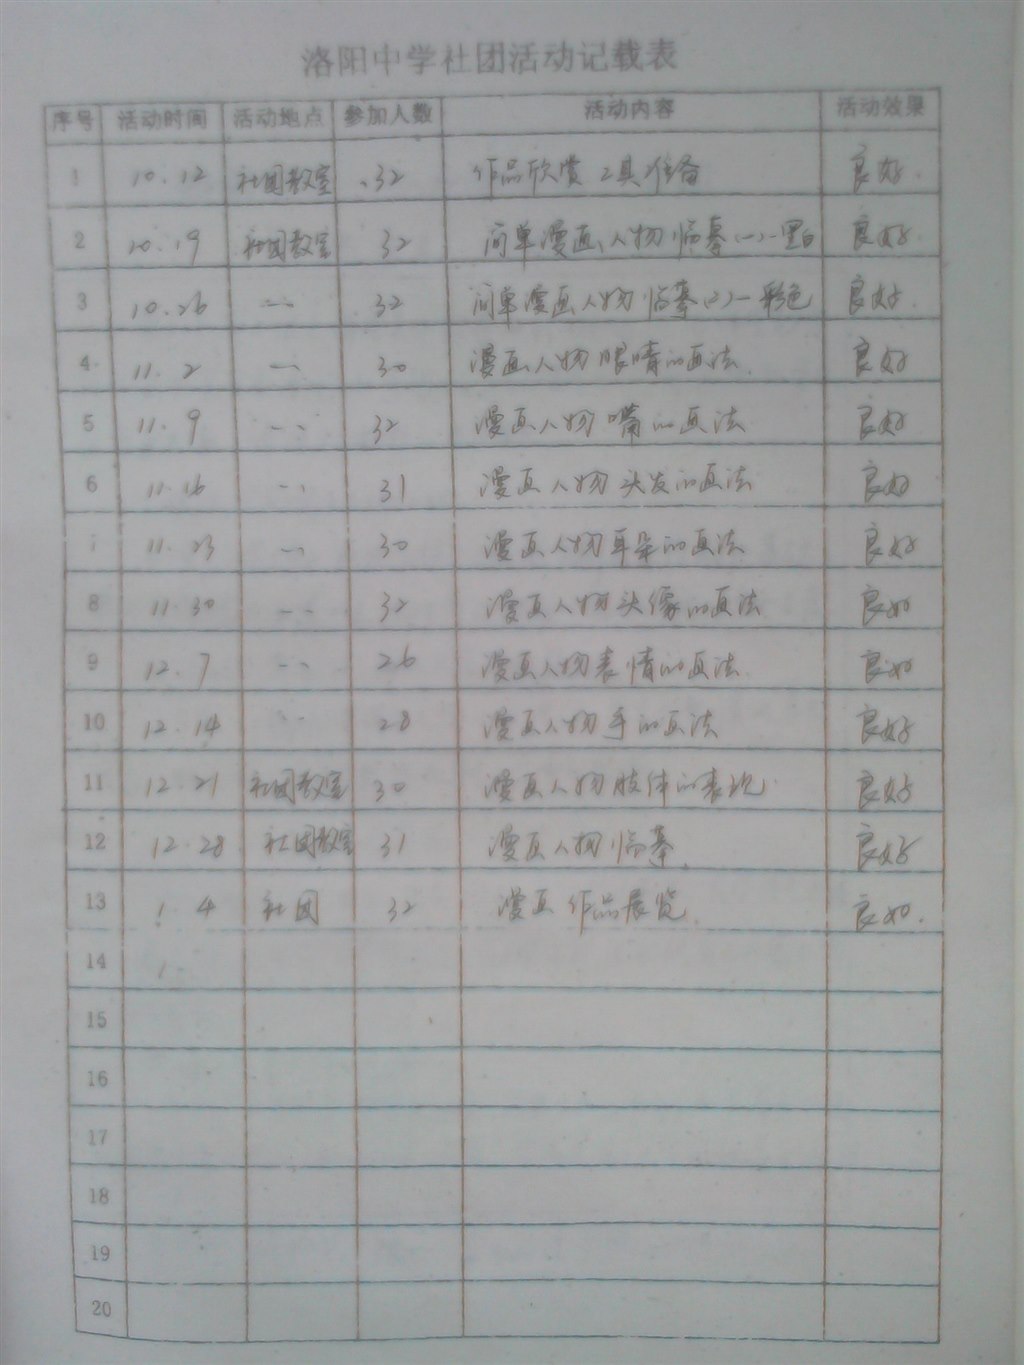 洛阳中学社团活动记载表
序号 活动时间 活动地点 参加人数 活动内容 活动效果
1 10.12 社团教室 32 作品欣赏 工具准备 良好.
2 10.19 社团教室 32 简单漫画人物临摹(一)—黑白 良好.
3 10.26 〃 32 简单漫画人物临摹(二)—彩色 良好.
4 11.2 〃 30 漫画人物眼睛的画法. 良好
5 11.9 〃 32 漫画人物嘴的画法 良好
6 11.16 〃 31 漫画人物头发的画法 良好
7 11.23 〃 30 漫画人物耳朵的画法 良好
8 11.30 〃 32 漫画人物头像的画法 良好
9 12.7 〃 26 漫画人物表情的画法. 良好
10 12.14 〃 28 漫画人物手的画法 良好
11 12.21 社团教室 30 漫画人物肢体的表现. 良好
12 12.28 社团教室 31 漫画人物临摹. 良好
13 1.4 社团 32 漫画作品展览. 良好.
14 1.
15
16
17
18
19
20